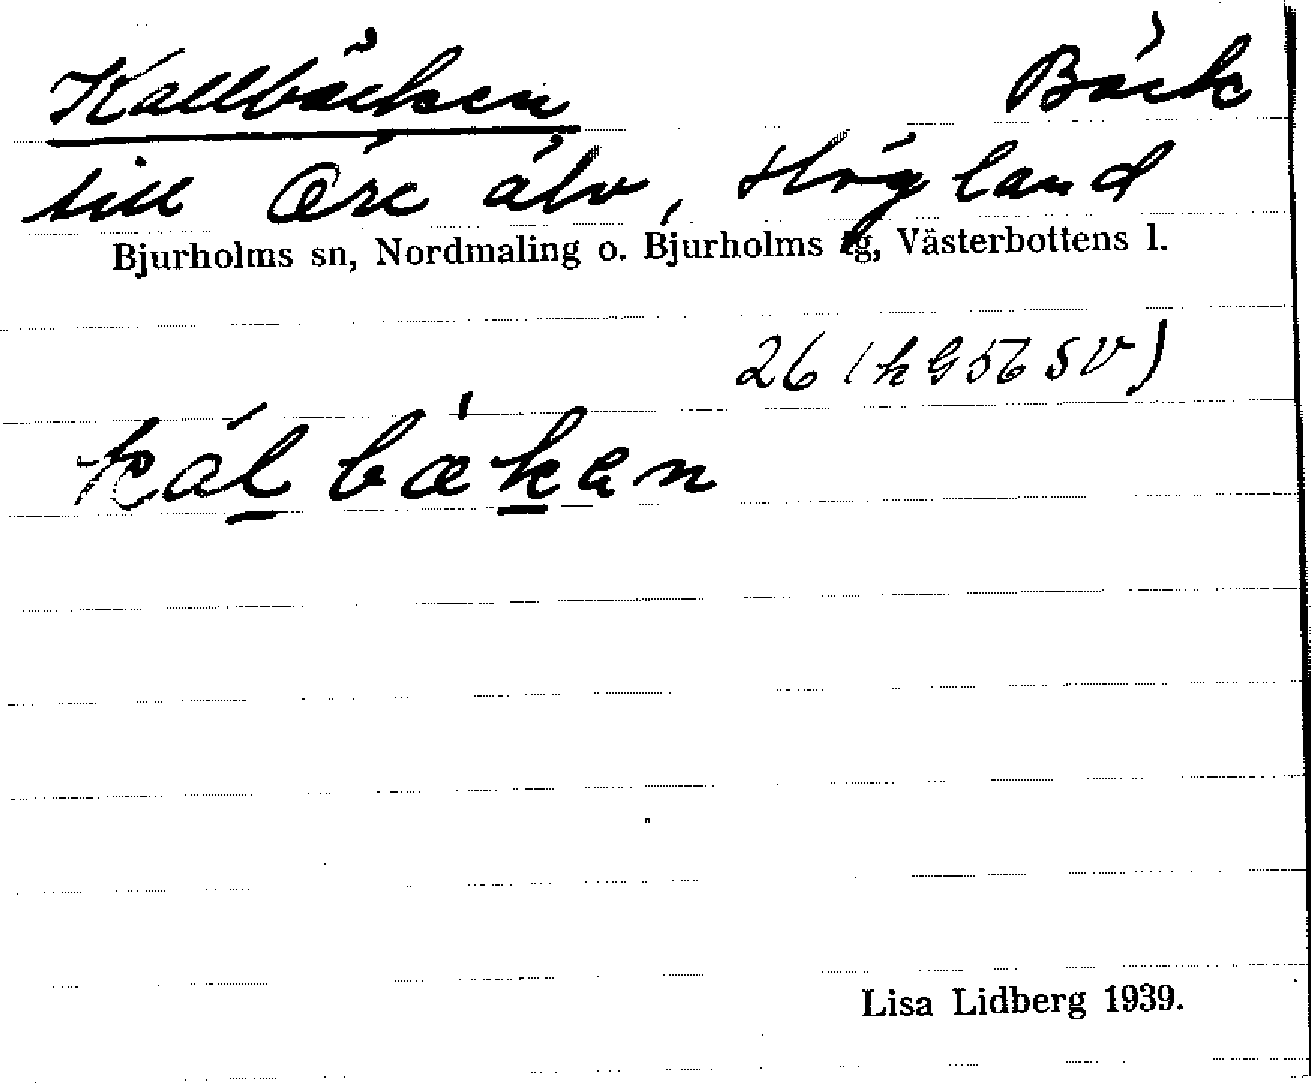 Kallbäcken Bäck
till Öre älv, Högland
Bjurholms sn, Nordmaling o. Bjurholms tg, Västerbottens l.
26 (h G 56 SV)
kálbækan
Lisa Lidberg 1939.